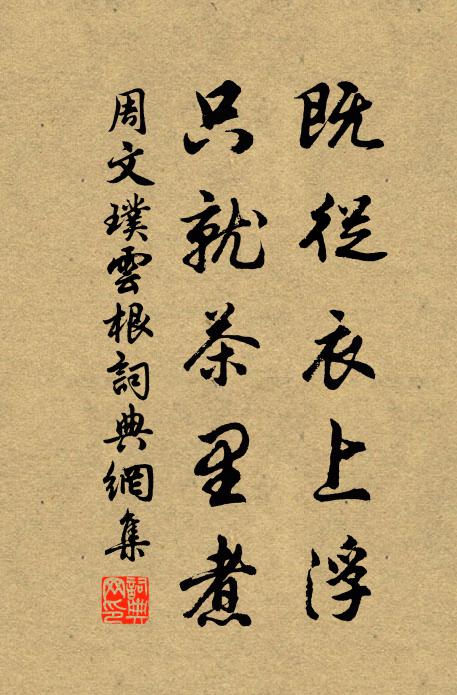 既從衣上浮
只就茶里煮
周文璞雲根詞典網集
詞典網印